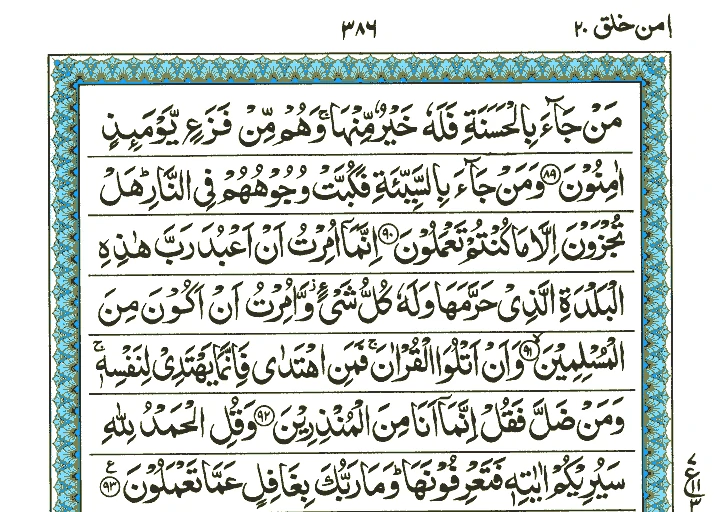 امن خلق ٢٠ ٣٨٦
مَنْ جَآءَ بِالْحَسَنَةِ فَلَهٗ خَيْرٌ مِّنْهَا ۚ وَهُمْ مِّنْ فَزَعٍ يَّوْمَئِذٍ
اٰمِنُوْنَ ﴿٨٩﴾ وَمَنْ جَآءَ بِالسَّيِّئَةِ فَكُبَّتْ وُجُوْهُهُمْ فِى النَّارِ ؕ هَلْ
تُجْزَوْنَ اِلَّا مَا كُنْتُمْ تَعْمَلُوْنَ ﴿٩٠﴾ اِنَّمَآ اُمِرْتُ اَنْ اَعْبُدَ رَبَّ هٰذِهِ
الْبَلْدَةِ الَّذِىْ حَرَّمَهَا وَلَهٗ كُلُّ شَىْءٍ ؗ وَّاُمِرْتُ اَنْ اَكُوْنَ مِنَ
الْمُسْلِمِيْنَ ﴿٩١﴾ ۙ وَاَنْ اَتْلُوَا الْقُرْاٰنَ ۚ فَمَنِ اهْتَدٰى فَاِنَّمَا يَهْتَدِىْ لِنَفْسِهٖ ۚ
وَمَنْ ضَلَّ فَقُلْ اِنَّمَآ اَنَا مِنَ الْمُنْذِرِيْنَ ﴿٩٢﴾ وَقُلِ الْحَمْدُ لِلّٰهِ
سَيُرِيْكُمْ اٰيٰتِهٖ فَتَعْرِفُوْنَهَا ؕ وَمَا رَبُّكَ بِغَافِلٍ عَمَّا تَعْمَلُوْنَ ﴿٩٣﴾ ع
٧
ع
١١
٣